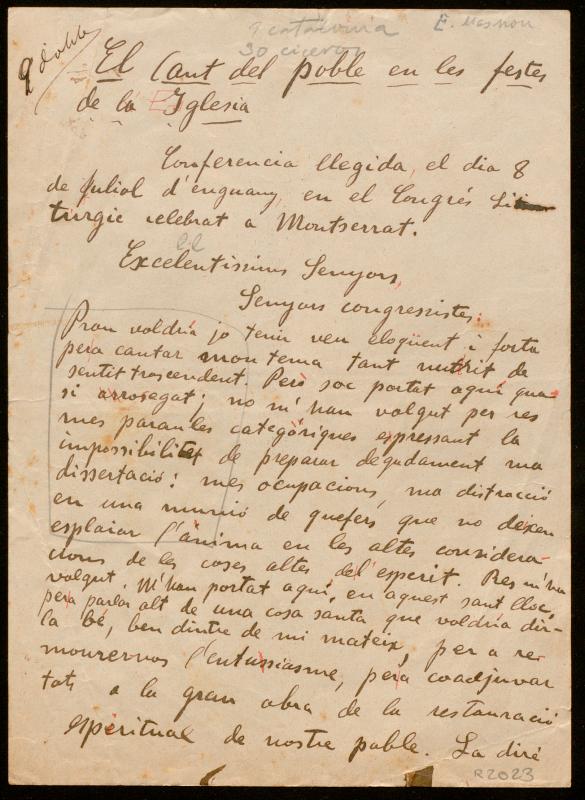 9 catalonia
30 ciceron
9 doble
El Cant del poble en les festes
de la Iglesia
Conferencia llegida, el dia 8
de juliol d'enguany, en el Congrés Li
túrgic celebrat a Montserrat.
Excelentissims Senyors,
Senyors congressistes:
Prou voldria jo tenir veu eloqüent i forta
pera cantar mon tema tant nutrit de
sentit trascendent. Però soc portat aquí qua-
si arrosegat: no m'han valgut per res
mes paraules categòriques expressant la
impossibilitat de preparar degudament ma
dissertació: mes ocupacions, ma distracció
en una munió de quefers que no deixen
esplaiar l'ànima en les altes considera-
cions de les coses altes del esperit. Res m'ha
valgut. M'han portat aquí, en aquest sant lloc,
pera parlar alt de una cosa santa que voldria dir-
la bé, ben dintre de mi mateix, per a re-
mourernos l'entussiasme, pera coadjuvar
tots a la gran obra de la restauració
espiritual de nostre poble. La diré
R2023